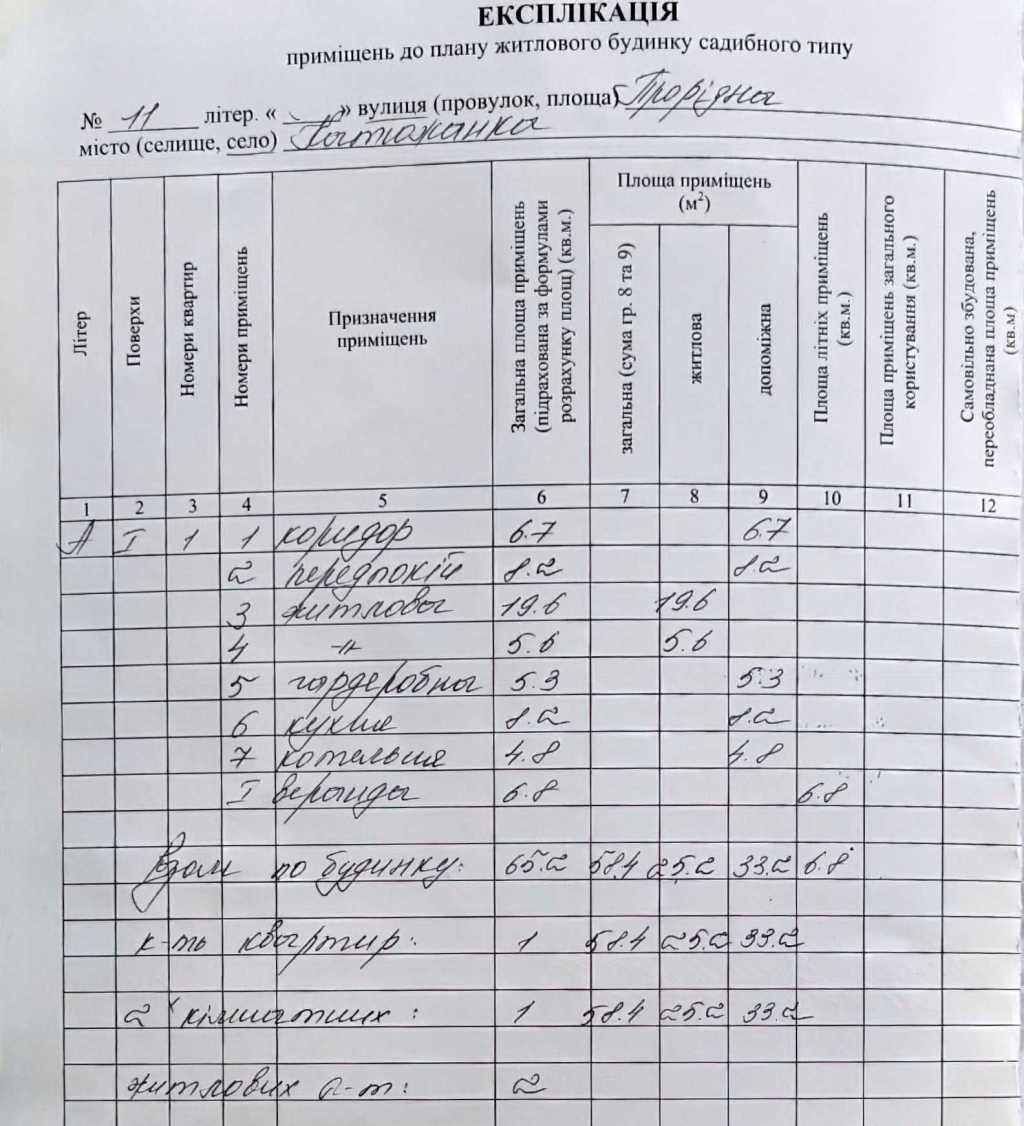 ЕКСПЛІКАЦІЯ
приміщень до плану житлового будинку садибного типу
№ 11 літер. « » вулиця (провулок, площа) Прорідна
місто (селище, село)
Літер
Поверхи
Номери квартир
Номери приміщень
Призначення
приміщень
Загальна площа приміщень
(підрахована за формулами
розрахунку площ) (кв.м.)
Площа приміщень
(м²)
загальна (сума гр. 8 та 9)
житлова
допоміжна
Площа літніх приміщень
(кв.м.)
Площа приміщень загального
користування (кв.м.)
Самовільно збудована,
переобладнана площа приміщень
(кв.м)
1 2 3 4 5 6 7 8 9 10 11 12
А І 1 1 коридор 6.7 6.7
2 передпокій 8.2 8.2
3 житлова 19.6 19.6
4 -//- 5.6 5.6
5 гардеробна 5.3 5.3
6 кухня 8.2 8.2
7 котельня 4.8 4.8
І веранда 6.8 6.8
Разом по будинку: 65.2 58.4 25.2 33.2 6.8
к-ть квартир: 1 58.4 25.2 33.2
2 кімнатних : 1 58.4 25.2 33.2
житлових к-т: 2